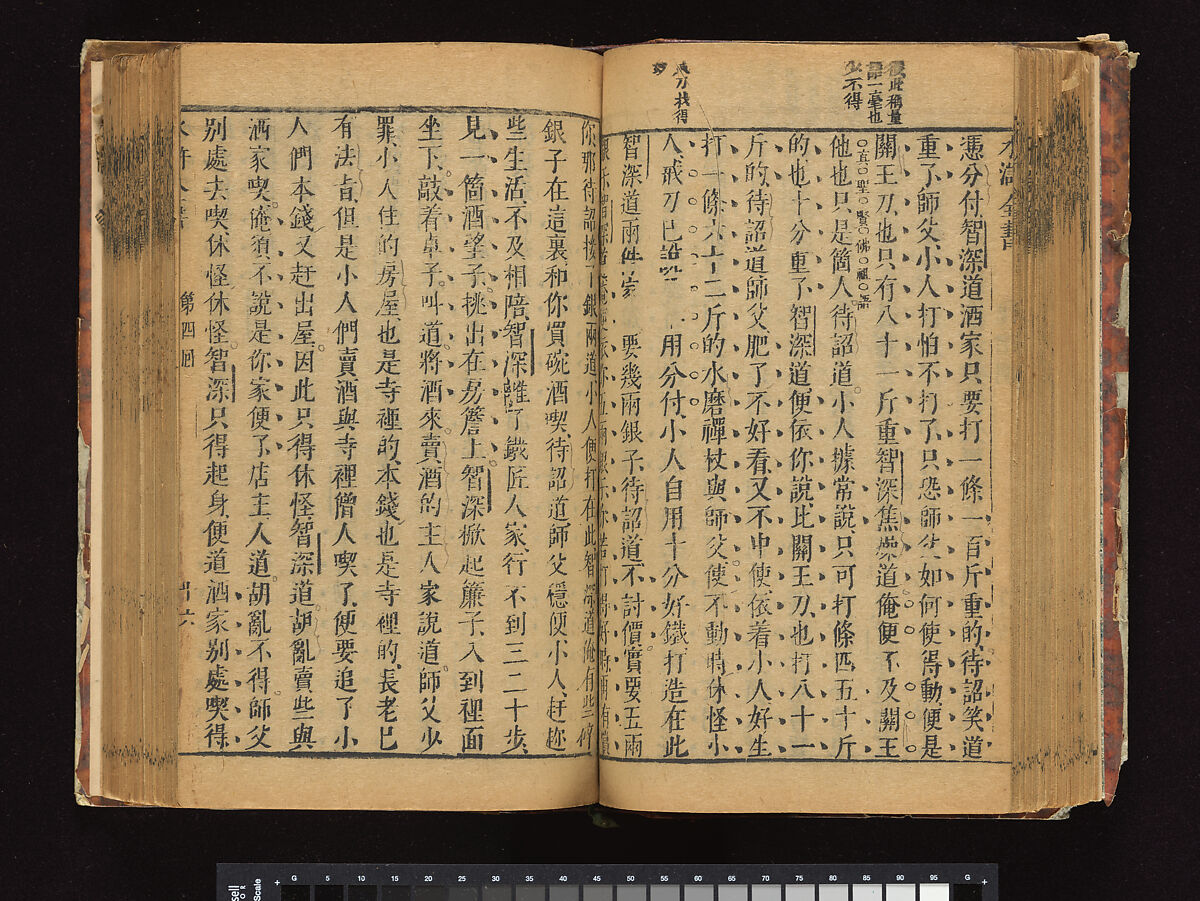 彼此稱量
語一毫也
少不得
刀找得
妙
水滸全書
憑分付智深道酒家只要打一條一百斤重的待詔笑道
重了師父小人打怕不打了只恐師父如何使得動便是
關王刀也只有八十一斤重智深焦燥道俺便不及關王
真聖賢佛祖語
他也只是箇人待詔道小人據常說只可打條四五十斤
的也十分重了智深道便依你說比關王刀也打八十一
斤的待詔道師父肥了不好看又不中使依着小人好生
打一條六十二斤的水磨禪杖與師父使不動時休怪小
人戒刀已說用分付小人自用十分好鐵打造在此
智深道兩件家要幾兩銀子待詔道不討價實要五兩
智深你五兩銀子你若打得好時再有賞
你那待詔接了銀兩道小人便打在此智深道俺有些碎
銀子在這裏和你買碗酒喫待詔道師父穩便小人赶趂
些生活不及相陪智深離了鐵匠人家行不到三二十步
見一箇酒望子挑出在房簷上智深掀起簾子入到裡面
坐下敲着卓子叫道將酒來賣酒的主人家說道師父少
罪小人住的房屋也是寺裡的本錢也是寺裡的長老已
有法旨但是小人們賣酒與寺裡僧人喫了便要追了小
人們本錢又赶出屋因此只得休怪智深道胡亂賣些與
酒家喫俺須不說是你家便了店主人道胡亂不得師父
别處去喫休怪休怪智深只得起身便道酒家别處喫得
第四回